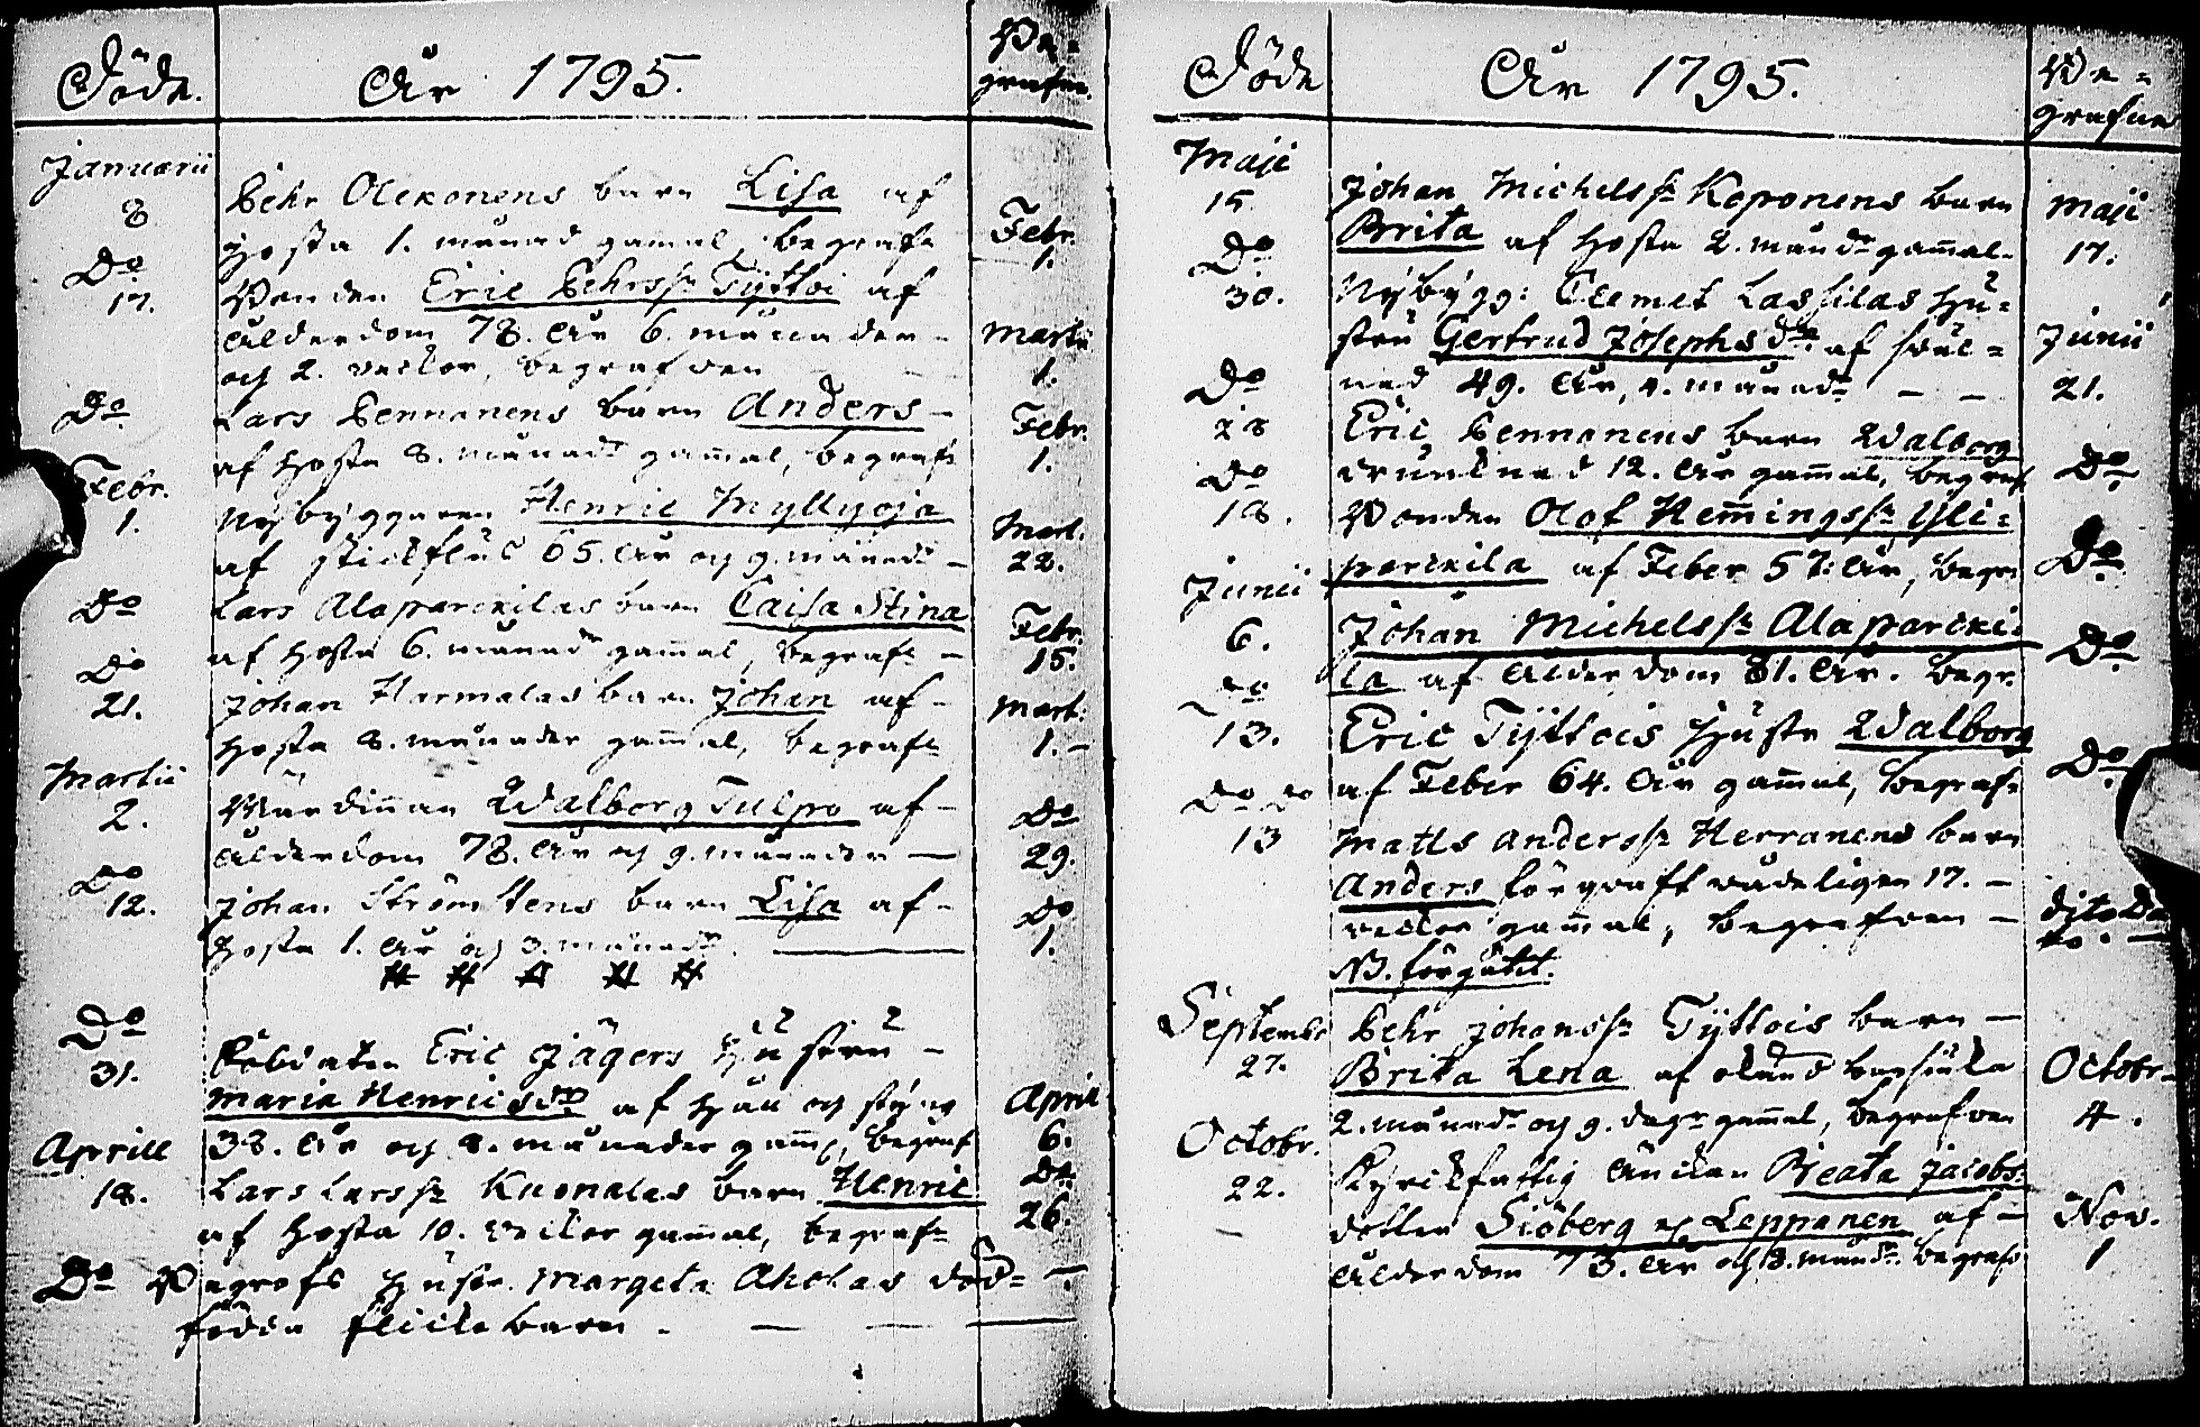 Döde. År 1795. Be=
grafne.
Januarii
8 Pehr Olckonens barn Lisa af
hosta 1. månad gammal, begrafn Febr. 1.
Do 17. Bonden Eric Pehrsson Tÿttoi af
ålderdom 78. år 6. månader
och 2. veckor, begrafven Martii 1.
Do Lars Pennanens barn Anders
af hosta 8. månad gammal, begrafn Febr. 1.
Febr. 1. Nÿbÿggaren Henric Myllyoja
af stickfluß 65. år och 9. månad Mart. 22.
Do Lars Alaparckilas barn Caisa Stina
af hosta 6. månad gammal, begrafn Febr. 15.
Do 21. Johan Harmalas barn Johan af
hosta 8. månader gammal, begrafn Mart. 1.
Martii 2. Värdinnan Walborg Tulpo af
ålderdom 78. år och 9. månader Do 29.
Do 12. Johan Strömstens barn Lisa af
hosta 1. år och 3. månad. Do 1.
Do 31. Soldaten Eric Jägers hustru
Maria Henricsdr af håll och styng
38. år och 8. månader gamml, begraf April 6.
Aprill 18. Lars Larssn Kuonalas barn Henric
af hosta 10. veckor gammal, begrafn Do 26.
Do Begrofs hustr. Margeta Aholas död=
födda flickebarn.
Döde År 1795. Be=
grafne
Maji 15 Johan Michelssn Koponens barn
Brita af hosta 2. månd gammal Maji 17.
Do 30. Nÿbÿgg: Clemet Lassilas hu=
stru Gertrud Josephsdr af svul=
nad 49. år, 4. månad Junii 21.
Do 28 Eric Pennanens barn Walborg
drunknad 12. år gammal, begraf Do
Do 18. Bonden Olof Hemmingssn Yli=
parckila af Feber 57. år, begr Do
Junii 6. Johan Michelssn Alaparcki=
la af ålderdom 81. år. begr. Do
Do 13. Eric Tÿttois Hustr Walborg
af Feber 64. år gammal, begrafn Do
Do do 13 Matts Anderssn Herranens barn
Anders förqvaft vådeligen 17.
veckor gammal, begrafven dito Do
NB. förgätit.
Septembr 27. Pehr Johanssn Tÿttois barn
Brita Lena af okänd barnsiuka
2. månad och 9. dagr gammal, begrafven Octobr 4.
Octobr. 22. Kyrckfattig änckan Beata Jacobs=
dotter Siöberg och Leppänen af
ålderdom 73. år och 3. månd begrafn Nov. 1